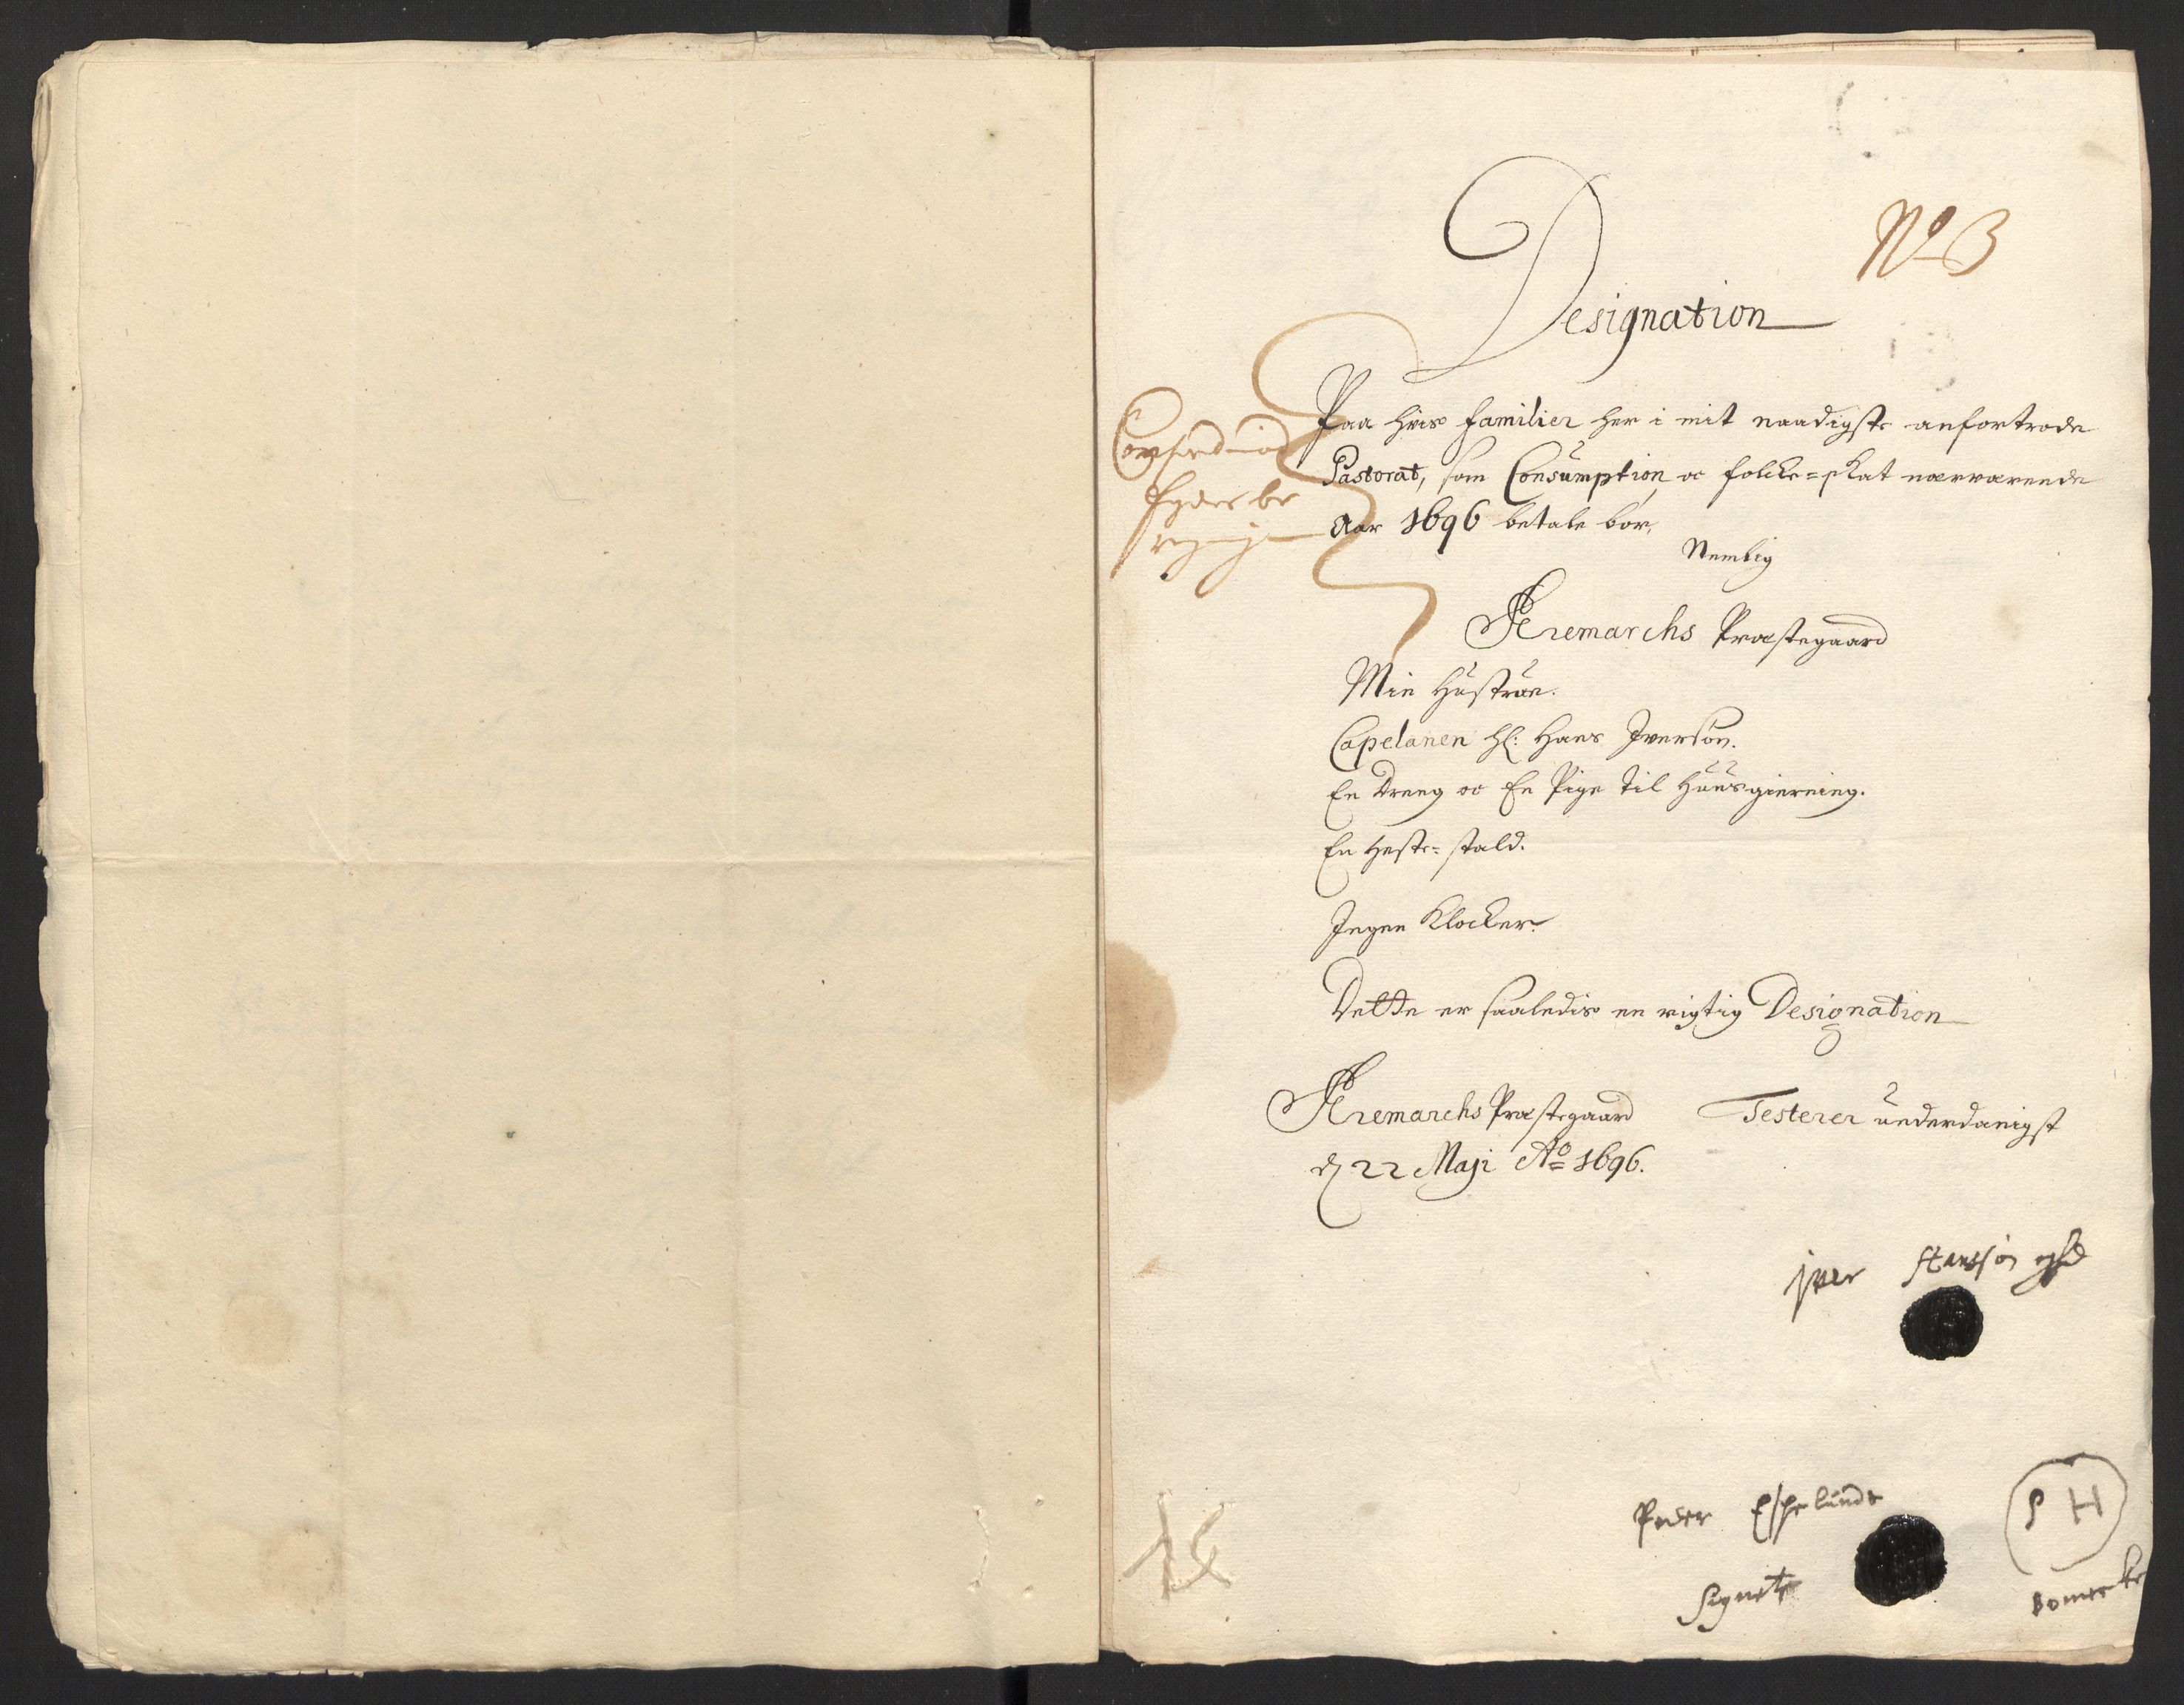 No 3
Designation
Paa hvis familier her i mit naadigste anfortrode
Pastorat, som Consumption oc folcke=skat nærværende
Aar 1696 betale bør,
Nemblig
Aremarchs Præstegaard
Min Hustrøe.
Capelanen Hl: Hans Iversøn.
En Dreng oc En Pige til Huusgierning.
En Heste=stald.
Ingen Klocker.
Dette er saaledis en rigtig Designation
Aremarchs Præstegaard
d 22 Maji Ao 1696.
Testerer underdanigst
jver Hanssøn
Peder Espelunde
Signete
P H
bomerke